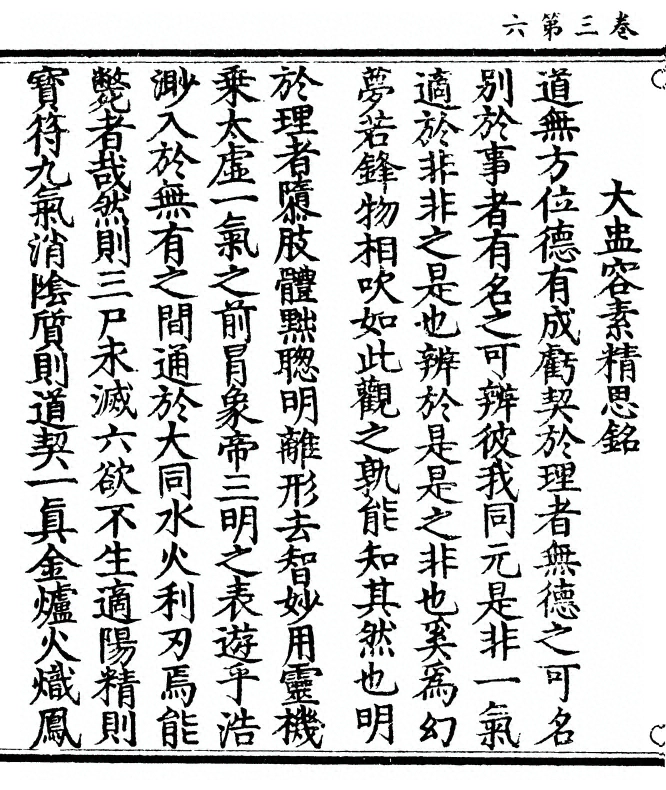 卷三第六
大盅容素精思銘
道無方位德有成虧契於理者無德之可名
別於事者有名之可辨彼我同元是非一氣
適於非非之是也辨於是是之非也奚為幻
夢若鋒物相吹如此觀之孰能知其然也明
於理者隳肢體黜聰明離形去智妙用靈機
乘太虛一氣之前冒象帝三明之表遊乎浩
渺入於無有之間通於大同水火利刃焉能
斃者哉然則三尸未滅六欲不生適陽精則
寶符九氣消陰質則道契一真金爐火熾鳳